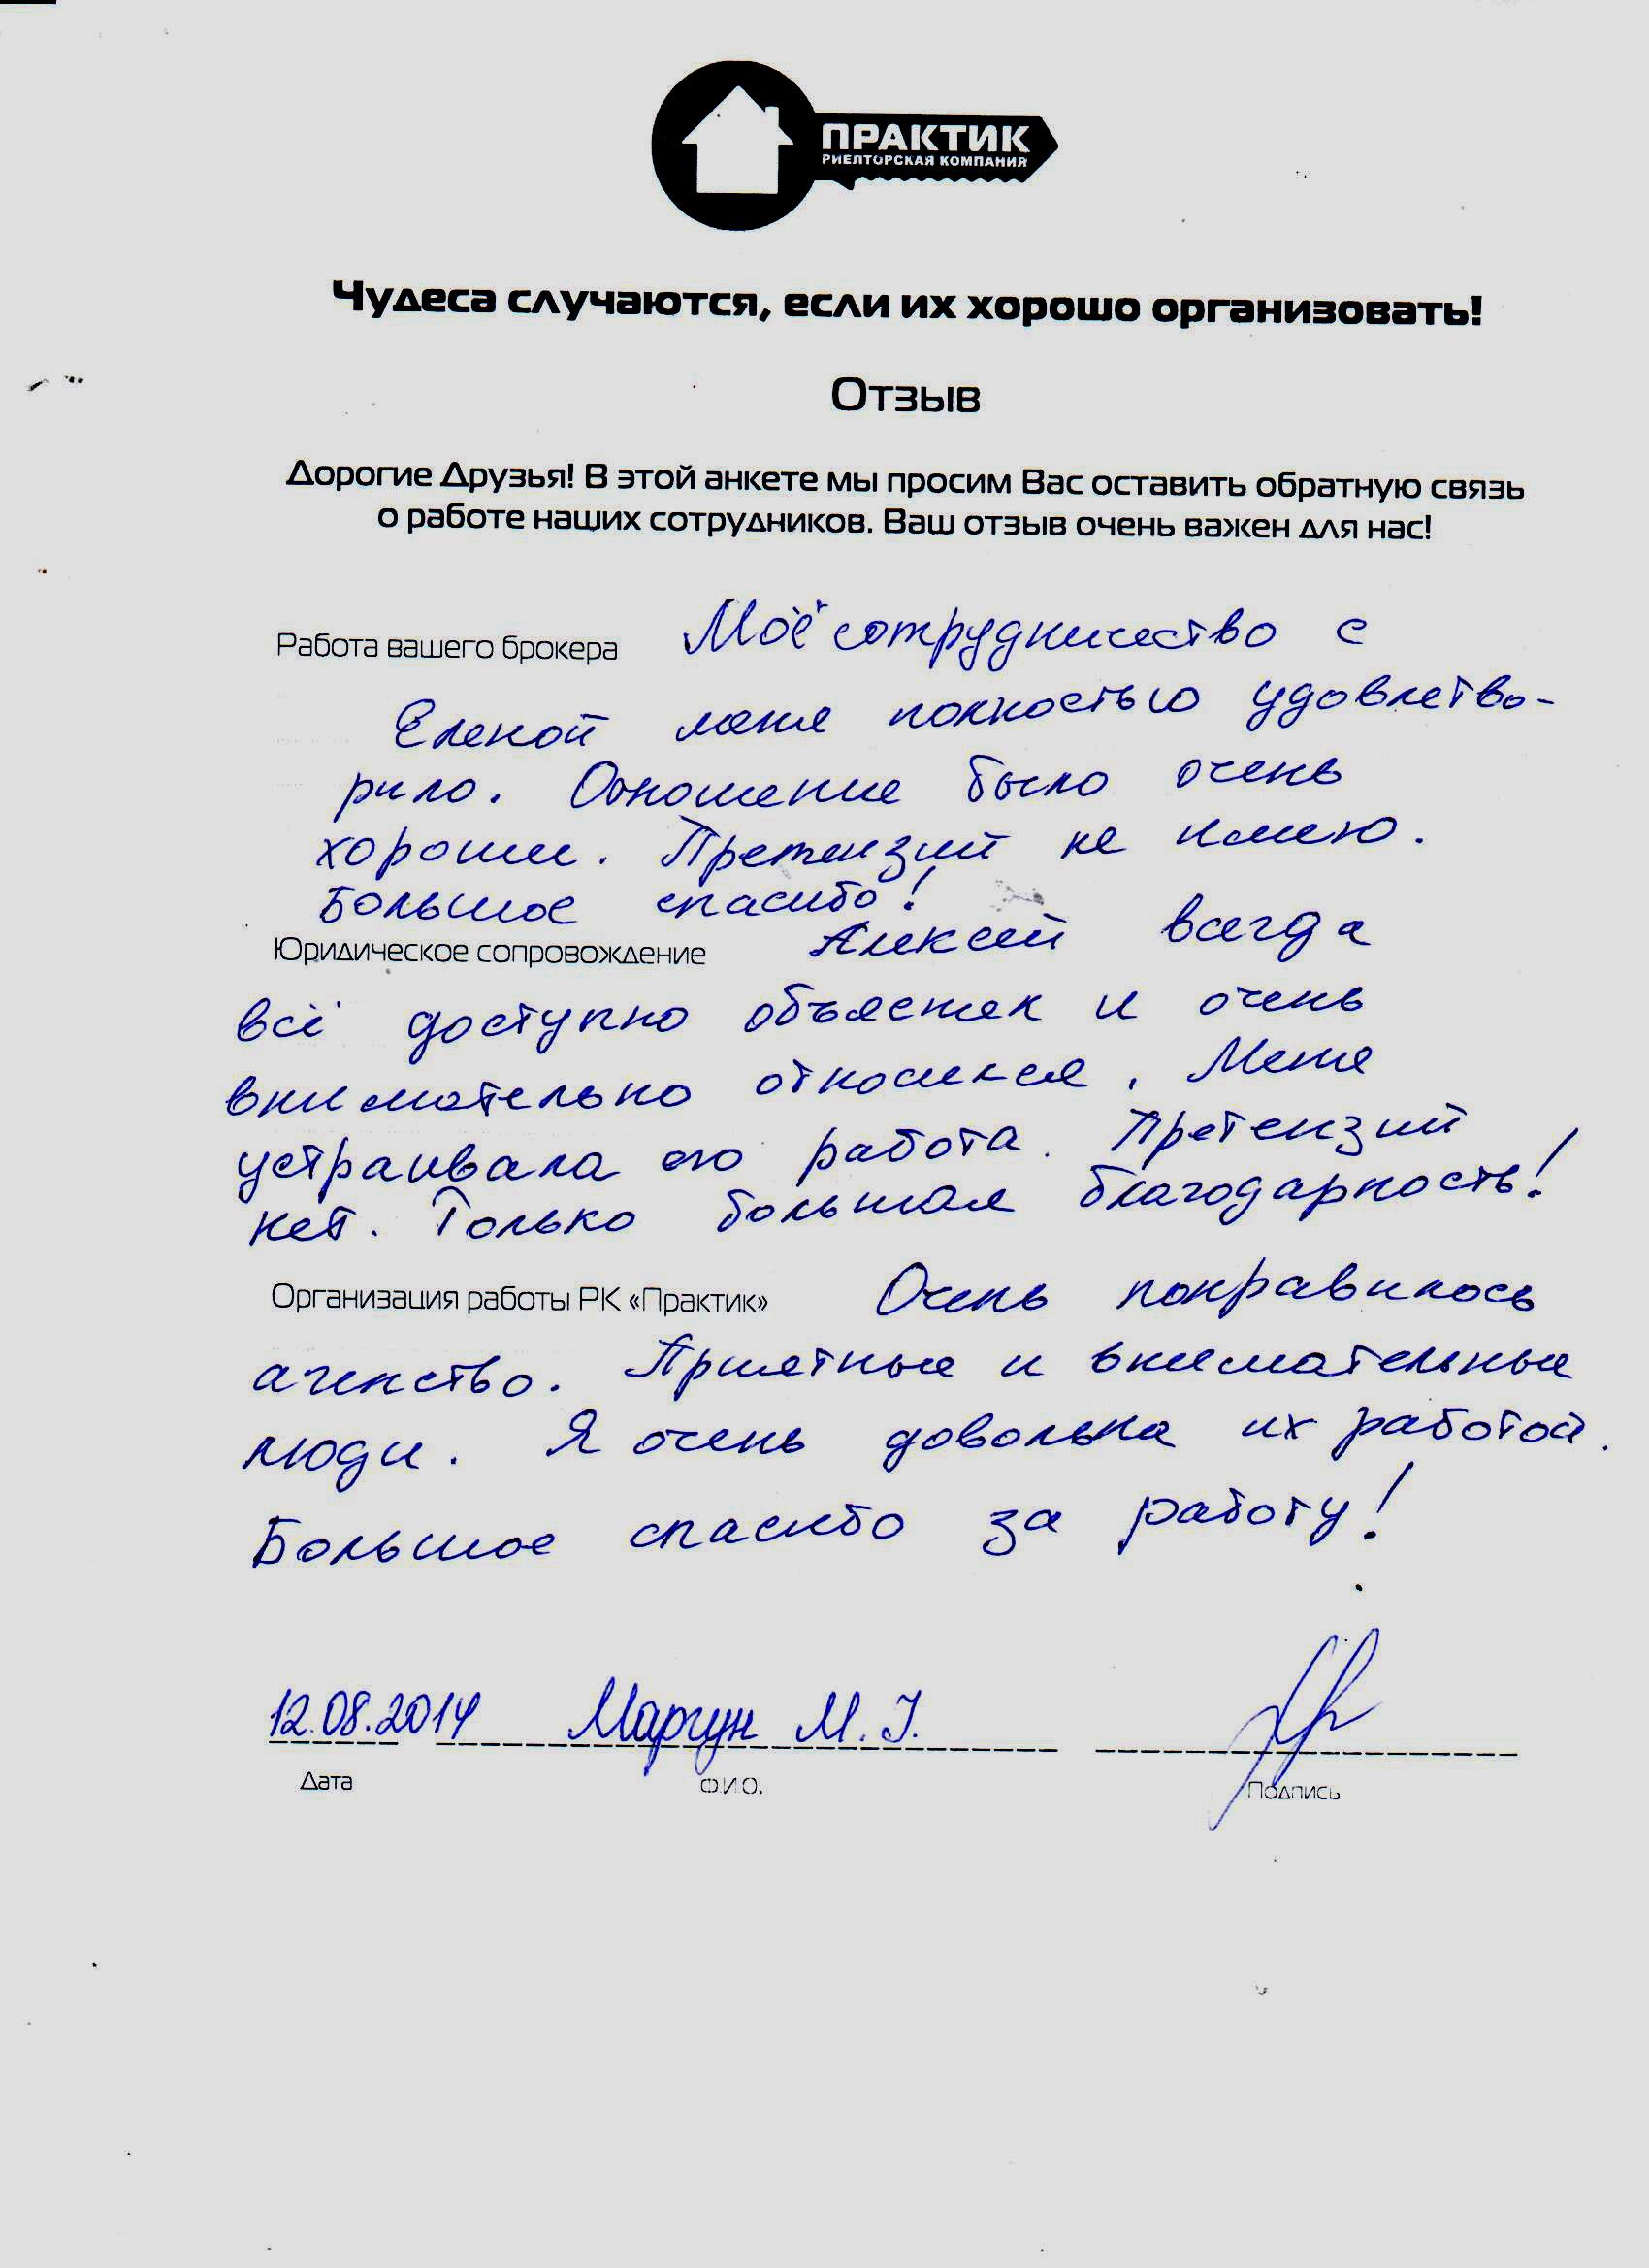 ПРАКТИК
РИЕЛТОРСКАЯ КОМПАНИЯ
Чудеса случаются, если их хорошо организовать!
Отзыв
Дорогие Друзья! В этой анкете мы просим Вас оставить обратную связь
о работе наших сотрудников. Ваш отзыв очень важен для нас!
Работа вашего брокера Моё сотрудничество с
Еленой меня полностью удовлетво-
рило. Отношение было очень
хорошим. Претензий не имею.
Большое спасибо!
Юридическое сопровождение Алексей всегда
всё доступно объяснял и очень
внимательно относился. Меня
устраивала его работа. Претензий
нет. Только большая благодарность!
Организация работы РК «Практик» Очень понравилось
агенство. Приятные и внимательные
люди. Я очень довольна их работой.
Большое спасибо за работу!
12.08.2014 Маргун М. И.
Дата Ф.И.О. Подпись